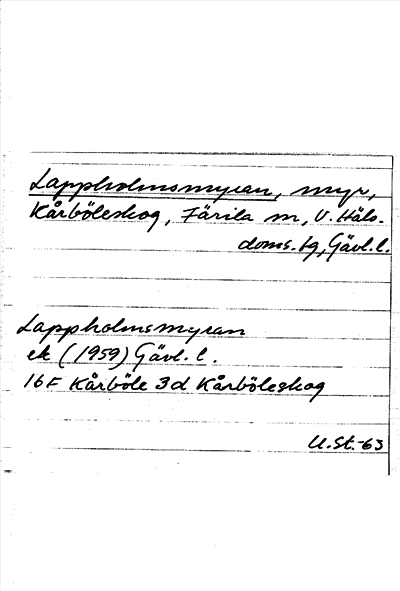 Lappholmsmyran, myr,
Kårböleskog, Färila sn, V. Häls.
doms. tg, Gävl. l.
Lappholmsmyran
ek (1959) Gävl. l.
16F Kårböle 3d Kårböleskog
U.St.-63